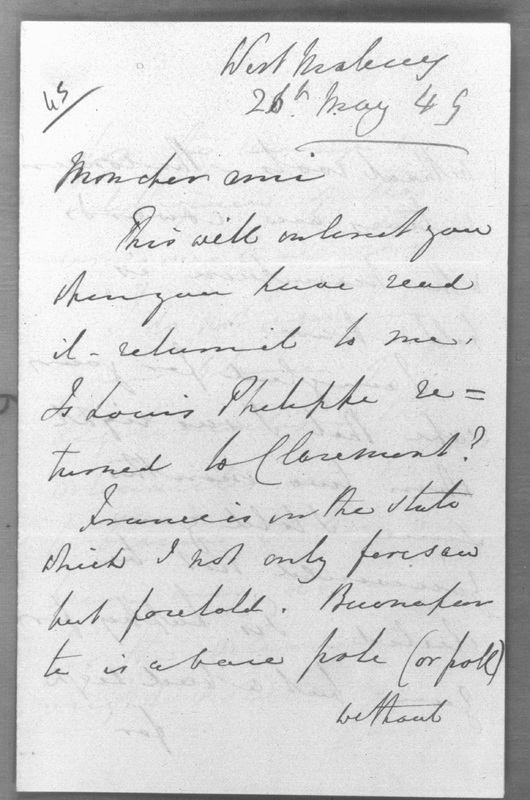 West Malvern
26th May 49
Mon cher ami
This will interest you
when you have read
it - return it to me.
Is Louis Philippe re=
turned to Claremont?
France is in the state
which I not only foresaw
but foretold. Buonapar
te is a bare pole (or poll)
without